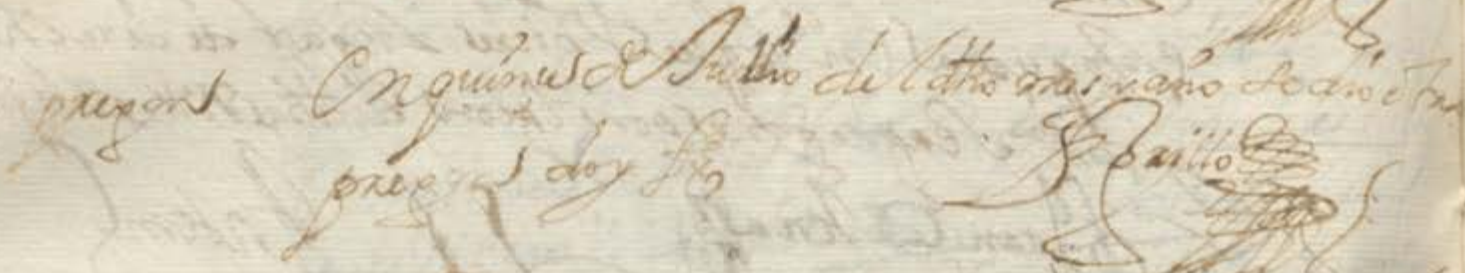 pregon En quinse de Jullio de dho mes y año se dio otro
pregon doy fe